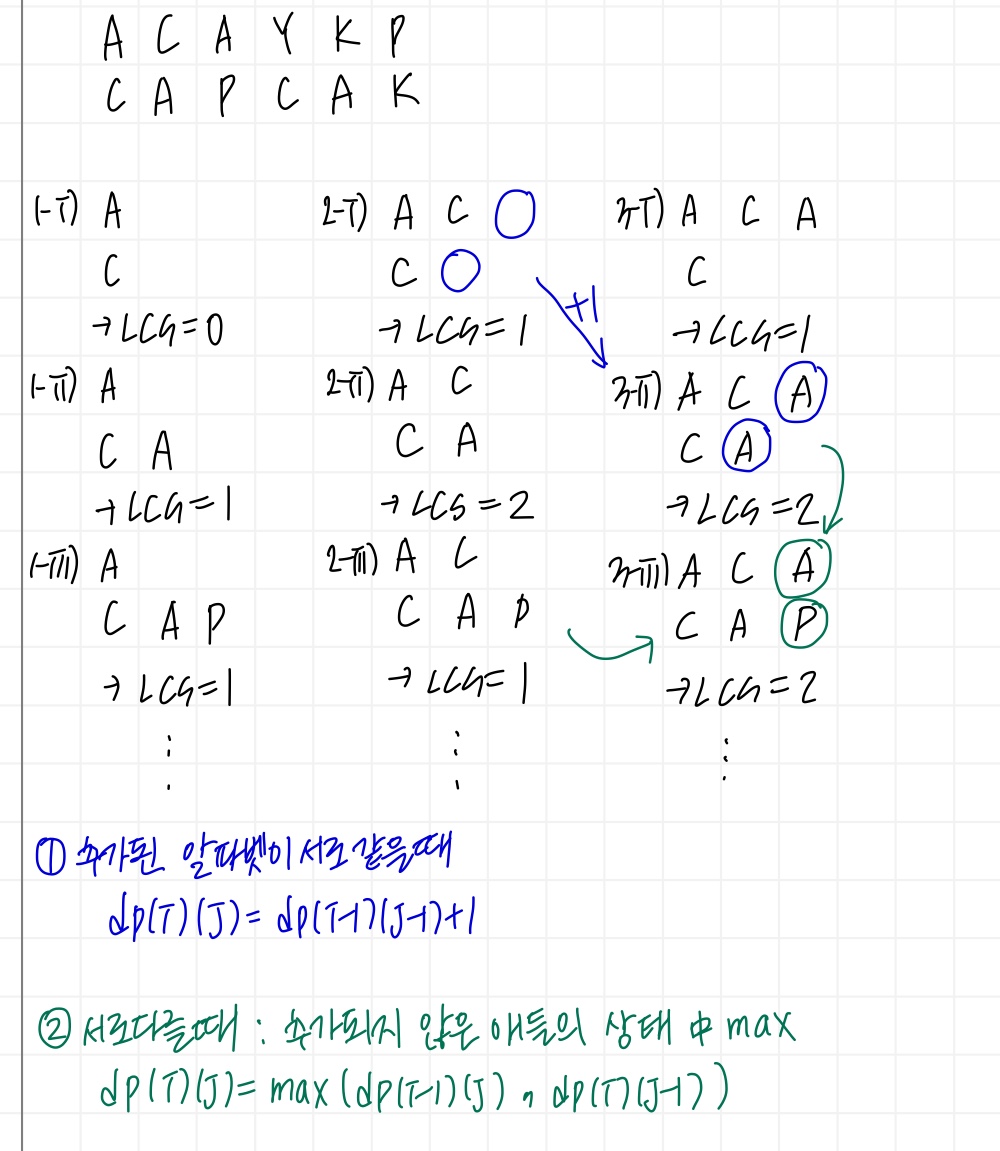 A C A Y K P
C A P C A K
1-i) A
C
→ LCS = 0
1-ii) A
C A
→ LCS = 1
1-iii) A
C A P
→ LCS = 1
⋮
2-i) A C
C
→ LCS = 1
2-ii) A C
C A
→ LCS = 2
2-iii) A C
C A P
→ LCS = 1
⋮
3-i) A C A
C
→ LCS = 1
+1
3-ii) A C A
C A
→ LCS = 2
3-iii) A C A
C A P
→ LCS = 2
⋮
① 추가된 알파벳이 서로 같을때
dp(i)(J) = dp(i-1)(J-1)+1
② 서로다를때 : 추가되지 않은 애들의 상태 中 max
dp(i)(J) = max(dp(i-1)(J), dp(i)(J-1))